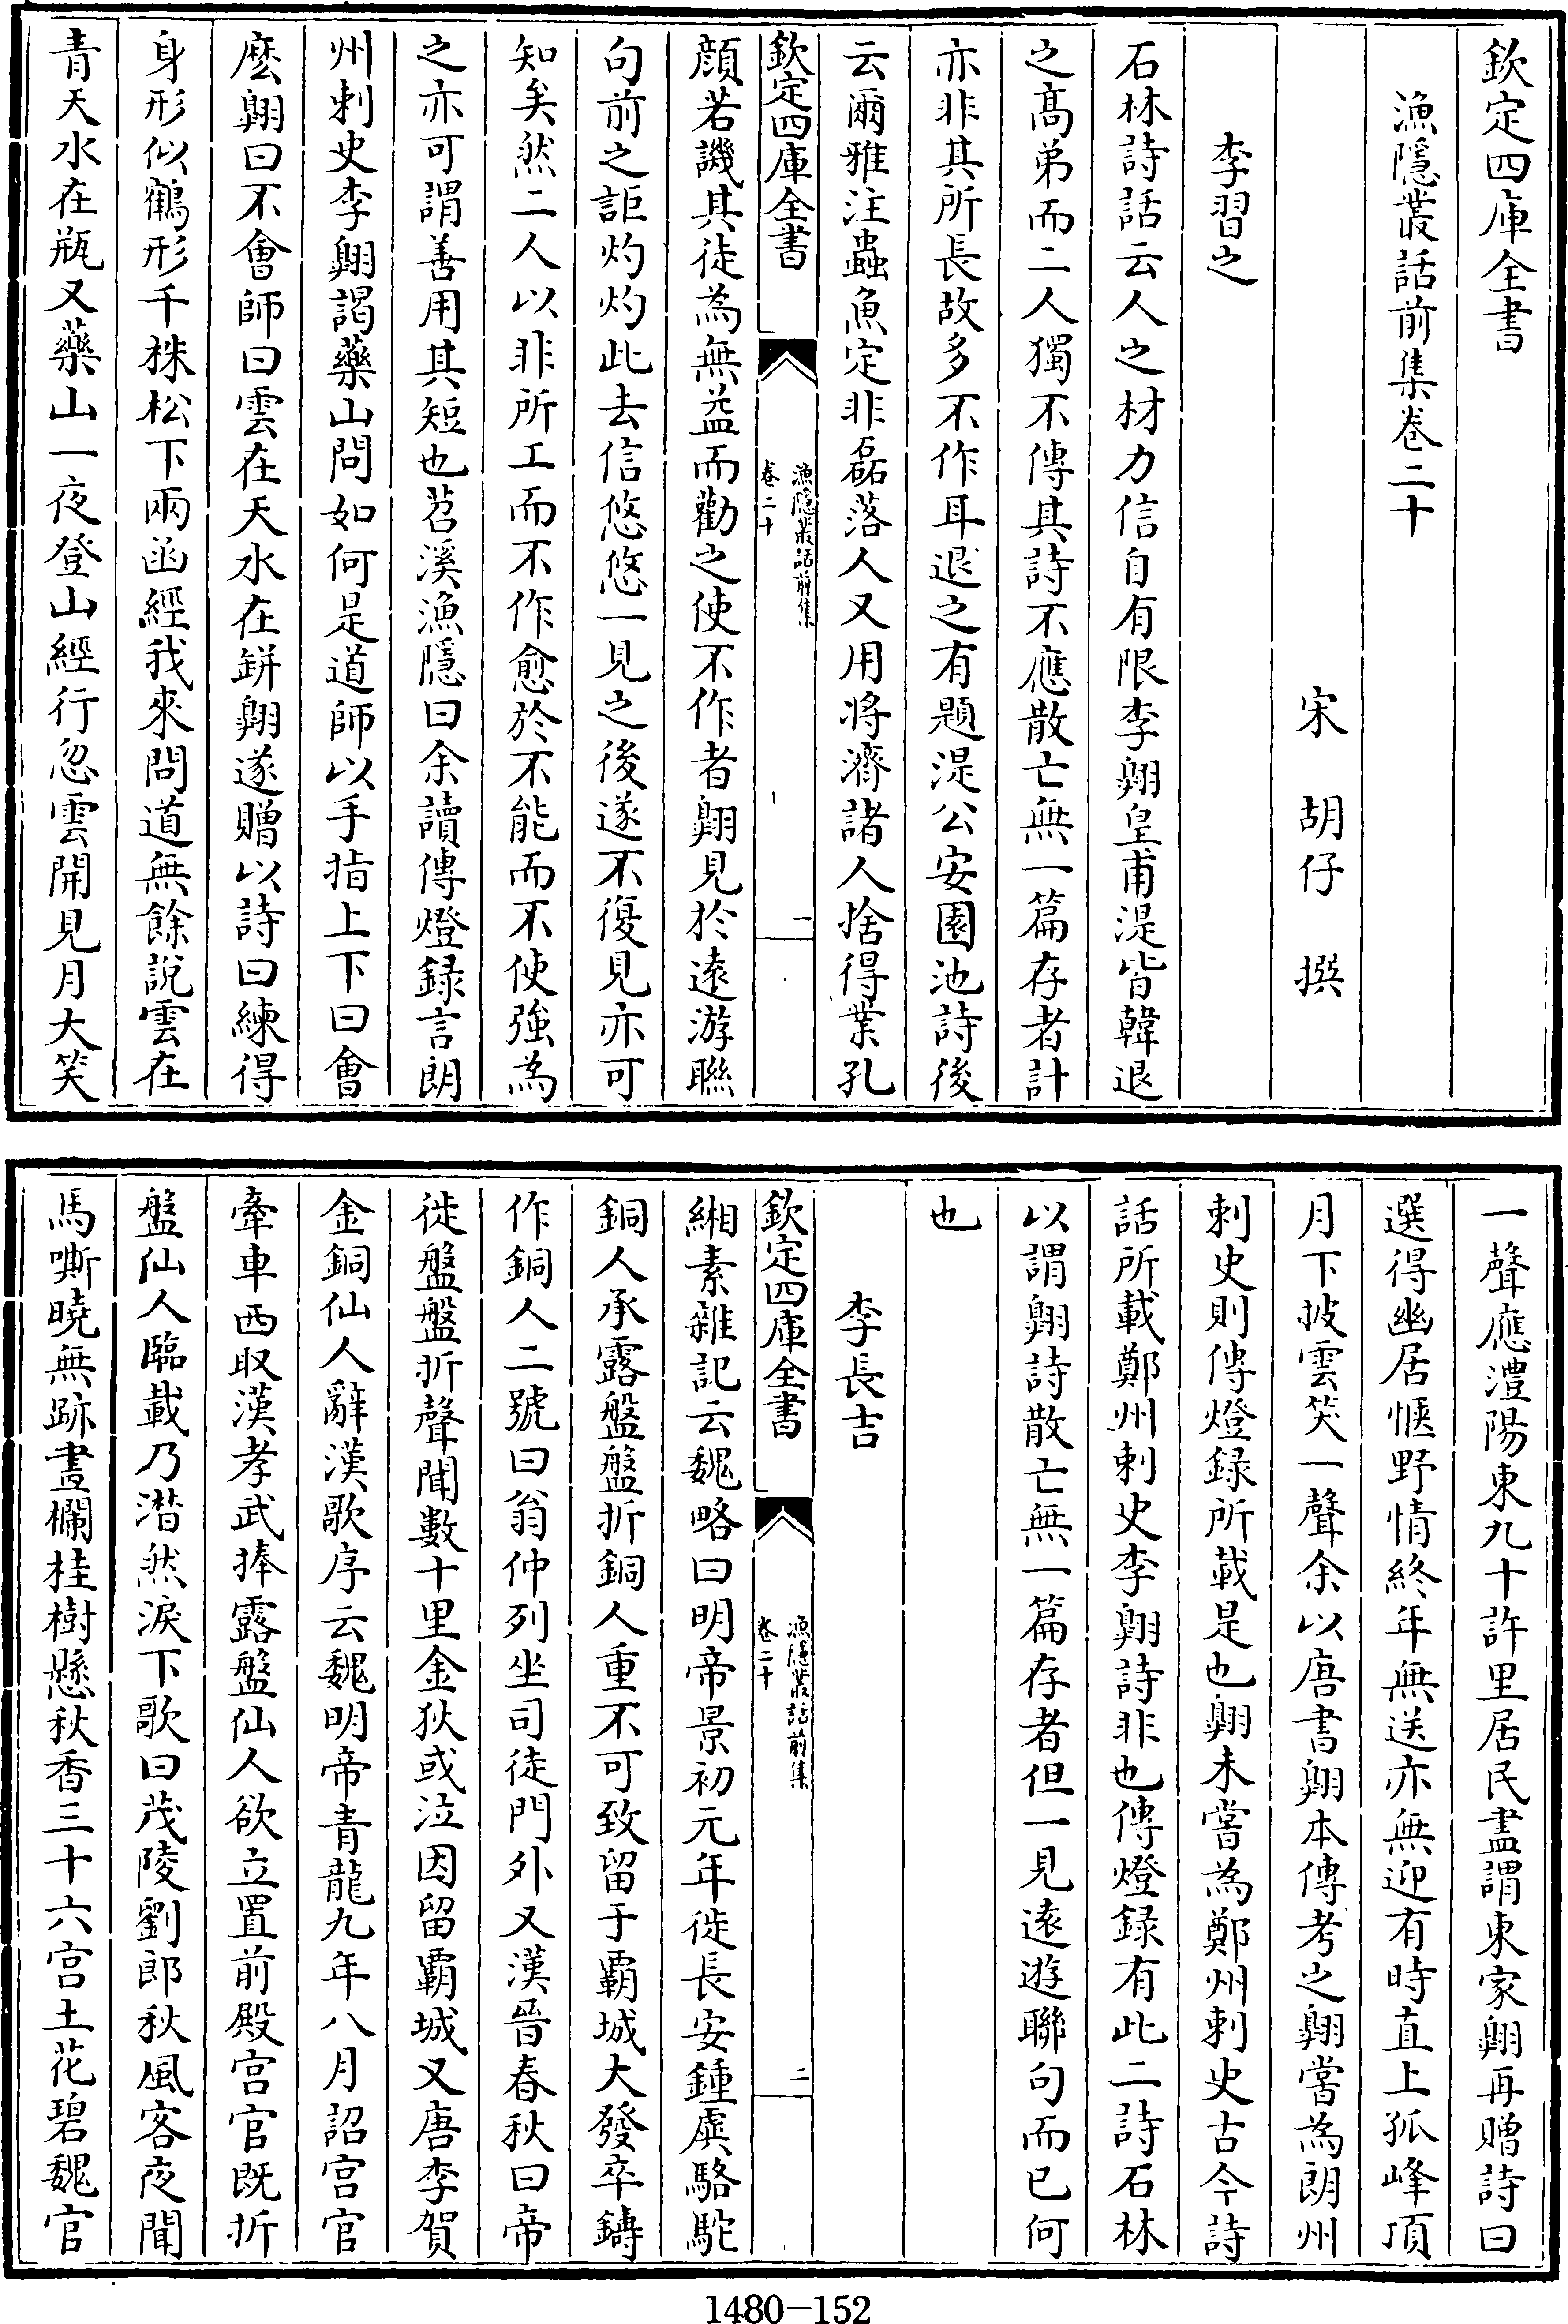 欽定四庫全書
漁隱叢話前集卷二十
宋　胡仔　撰
李習之
石林詩話云人之材力信自有限李翺皇甫湜皆韓退
之髙弟而二人獨不傳其詩不應散亡無一篇存者計
亦非其所長故多不作耳退之有題湜公安園池詩後
云爾雅注蟲魚定非磊落人又用將濟諸人捨得業孔
欽定四庫全書
漁隱叢話前集
卷二十
一
顔若譏其徒為無益而勸之使不作者翺見於逺游聯
句前之詎灼灼此去信悠悠一見之後遂不復見亦可
知矣然二人以非所工而不作愈於不能而不使強為
之亦可謂善用其短也苕溪漁隱曰余讀傳燈録言朗
州刺史李翺謁藥山問如何是道師以手指上下曰會
麽翺曰不會師曰雲在天水在缾翺遂贈以詩曰練得
身形似鶴形千株松下兩函經我來問道無餘説雲在
青天水在瓶又藥山一夜登山經行忽雲開見月大笑
一聲應澧陽東九十許里居民盡謂東家翺再贈詩曰
選得幽居愜野情終年無送亦無迎有時直上孤峰頂
月下披雲笑一聲余以唐書翺本傳考之翺嘗為朗州
刺史則傳燈録所載是也翺未嘗為鄭州刺史古今詩
話所載鄭州刺史李翺詩非也傳燈録有此二詩石林
以謂翺詩散亡無一篇存者但一見逺遊聯句而已何
也
李長吉
欽定四庫全書
漁隱叢話前集
卷二十
二
緗素雜記云魏略曰明帝景初元年徙長安鍾虡駱駝
銅人承露盤盤折銅人重不可致留于霸城大發卒鑄
作銅人二號曰翁仲列坐司徒門外又漢晉春秋曰帝
徙盤盤折聲聞數十里金狄或泣因留霸城又唐李賀
金銅仙人辭漢歌序云魏明帝青龍九年八月詔宫官
牽車西取漢孝武捧露盤仙人欲立置前殿宫官既折
盤仙人臨載乃潸然淚下歌曰茂陵劉郎秋風客夜聞
馬嘶曉無跡畫欄桂樹懸秋香三十六宫土花碧魏官
1480-152